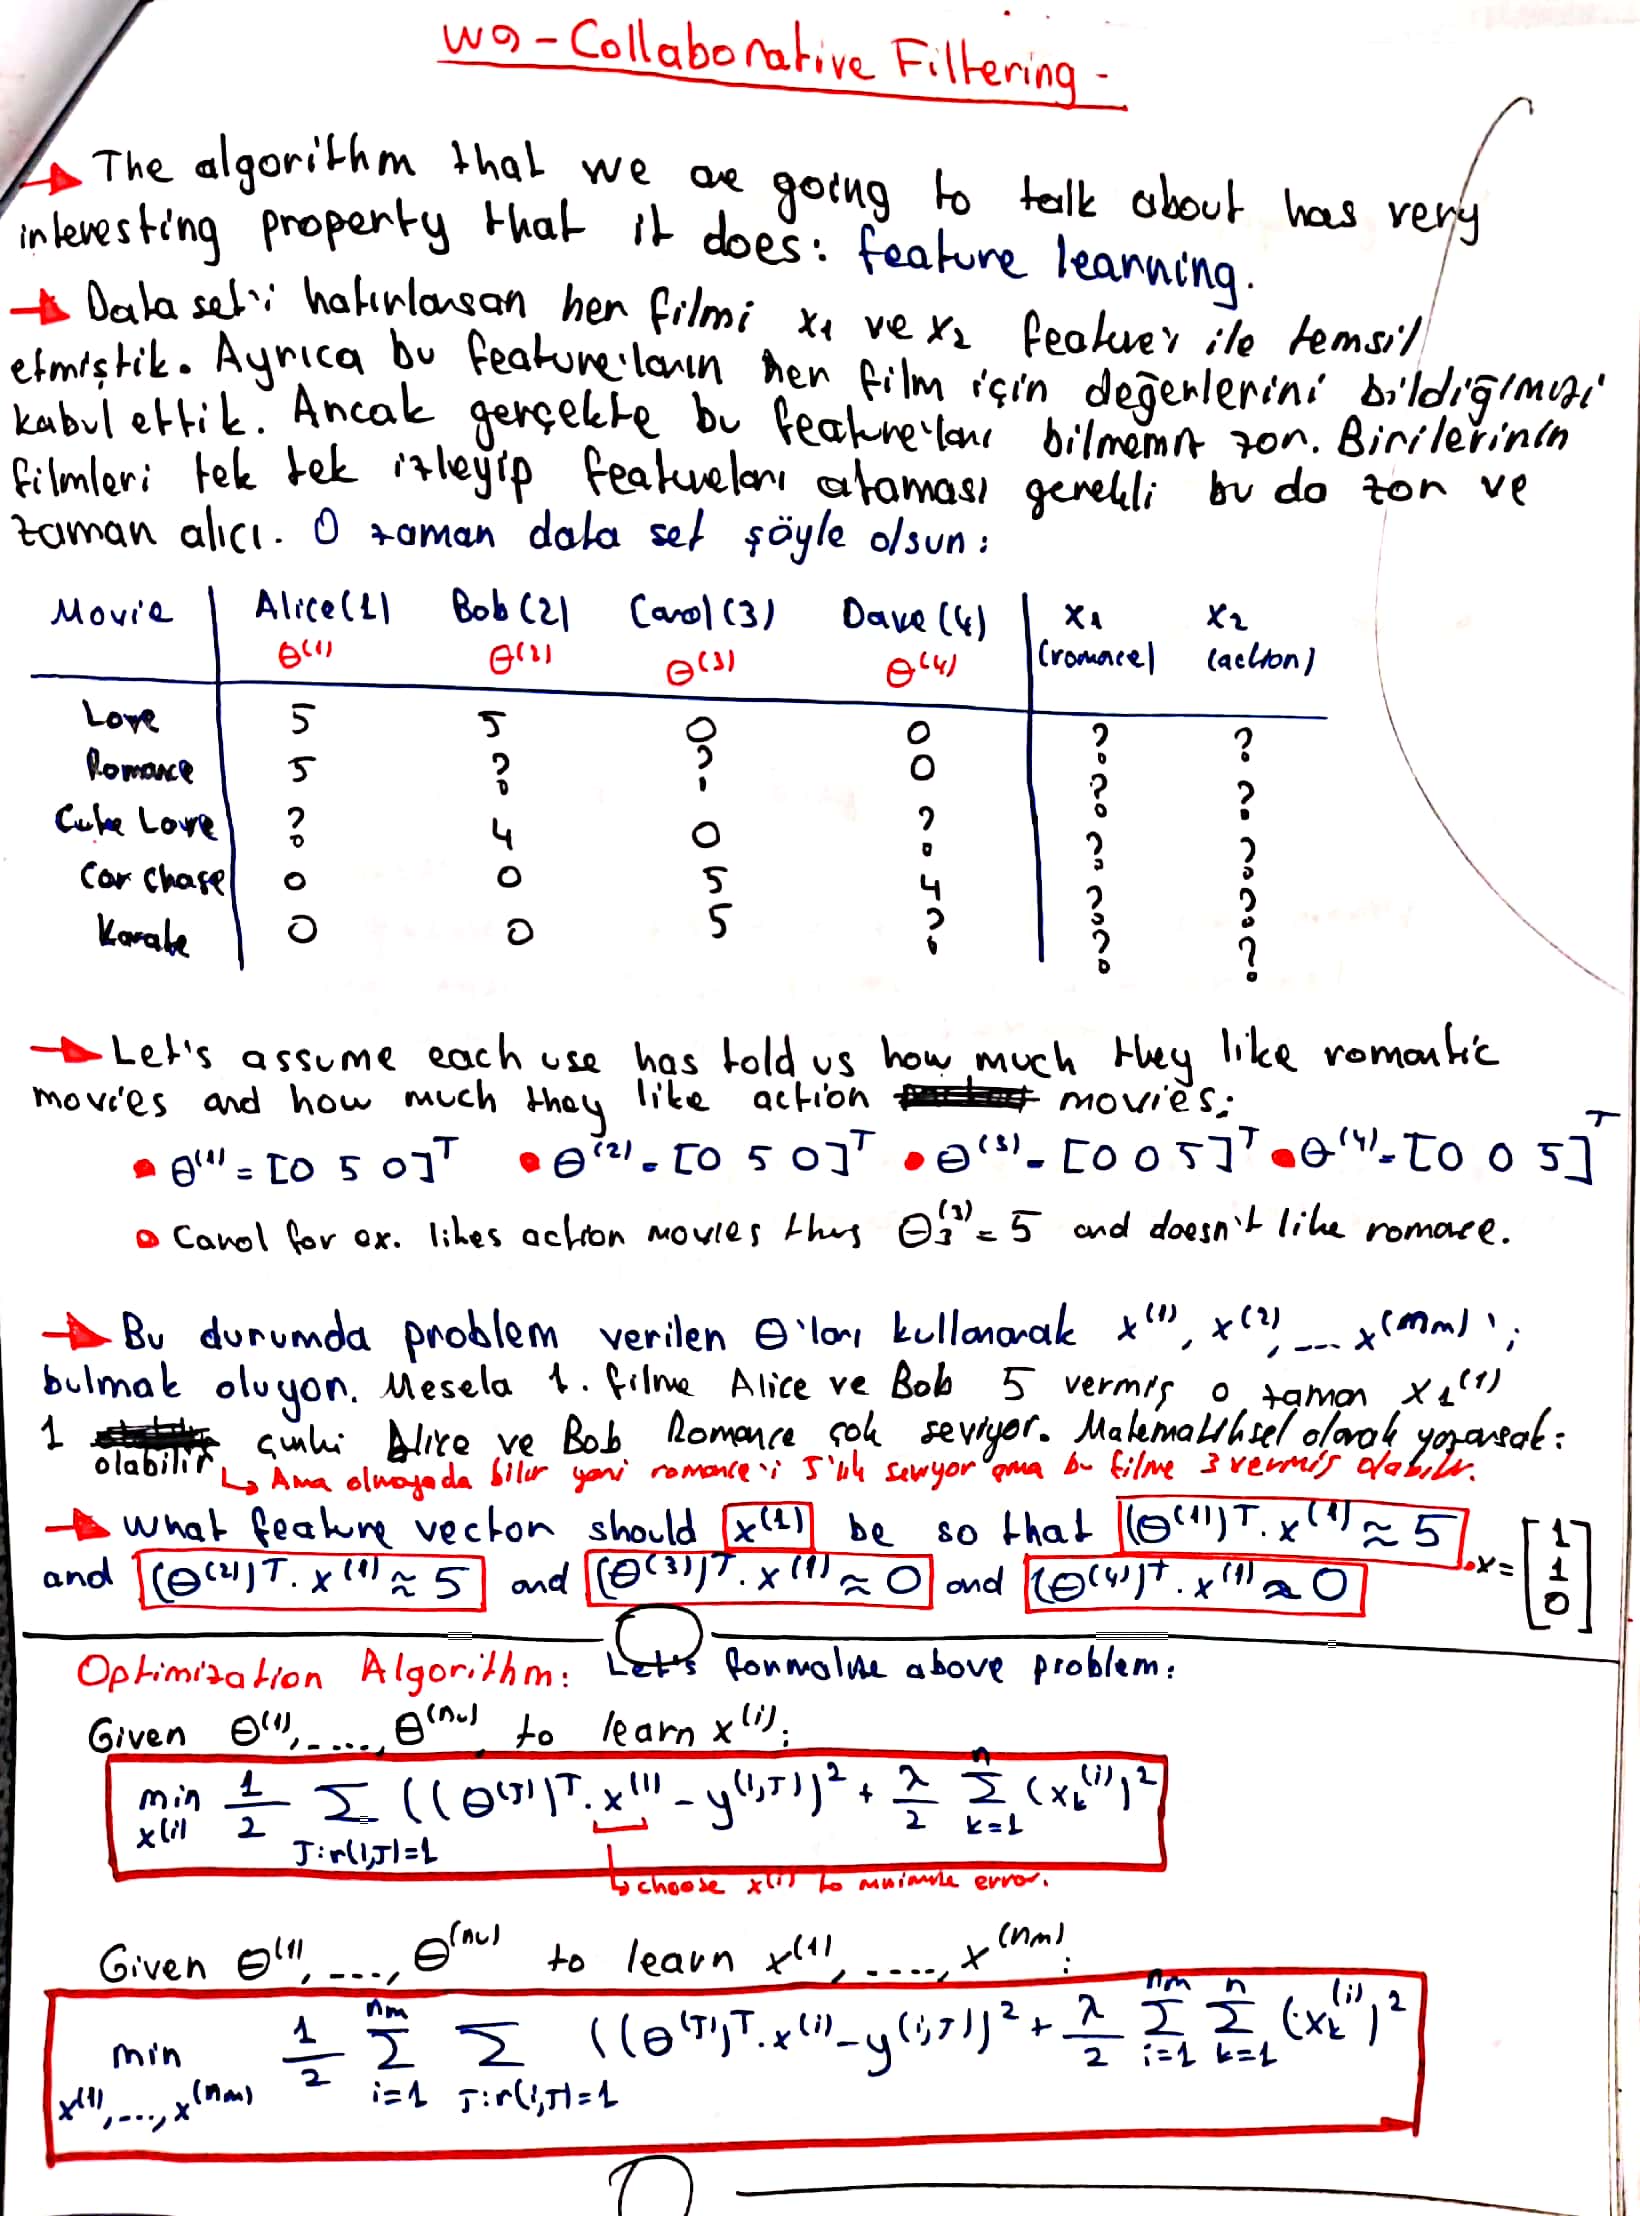 W9 - Collaborative Filtering -
→ The algorithm that we are going to talk about has very
interesting property that it does: feature learning.
→ Data set'i hatırlarsan her filmi x₁ ve x₂ feature'ı ile temsil
etmiştik. Ayrıca bu feature'ların her film için değerlerini bildiğimizi
kabul ettik. Ancak gerçekte bu feature'ları bilmemiz zor. Birilerinin
filmleri tek tek izleyip featureları ataması gerekli bu da zor ve
zaman alıcı. O zaman data set şöyle olsun:
Movie Alice(1) Bob(2) Carol(3) Dave(4) x₁ x₂
θ⁽¹⁾ θ⁽²⁾ θ⁽³⁾ θ⁽⁴⁾ (romace) (action)
Love 5 5 0 0 ? ?
Romance 5 ? ? 0 ? ?
Cute Love ? 4 0 ? ? ?
Car Chase 0 0 5 4 ? ?
Karate 0 0 5 ? ? ?
→ Let's assume each use has told us how much they like romantic
movies and how much they like action movies:
• θ⁽¹⁾ = [0 5 0]ᵀ • θ⁽²⁾ = [0 5 0]ᵀ • θ⁽³⁾ = [0 0 5]ᵀ • θ⁽⁴⁾ = [0 0 5]ᵀ
• Carol for ex. likes action movies thus θ₃⁽³⁾ = 5 and doesn't like romace.
→ Bu durumda problem verilen θ'ları kullanarak x⁽¹⁾, x⁽²⁾, ... x⁽ⁿᵐ⁾'i
bulmak oluyor. Mesela 1. filme Alice ve Bob 5 vermiş o zaman x₁⁽¹⁾
1 olabilir çünkü Alice ve Bob Romance çok seviyor. Matematiksel olarak yazarsak:
↳ Ama olmayada bilir yani romance'i 5'lik seviyor ama bu filme 3 vermiş olabilir.
→ What feature vector should x⁽¹⁾ be so that (θ⁽¹⁾)ᵀ. x⁽¹⁾ ≈ 5
and (θ⁽²⁾)ᵀ. x⁽¹⁾ ≈ 5 and (θ⁽³⁾)ᵀ. x⁽¹⁾ ≈ 0 and (θ⁽⁴⁾)ᵀ. x⁽¹⁾ ≈ 0 • x = [1 1 0]
Optimization Algorithm: Let's formalise above problem:
Given θ⁽¹⁾, ...., θ⁽ⁿᵘ⁾ to learn x⁽ⁱ⁾:
min x⁽ⁱ⁾ 1/2 Σ J:r(i,J)=1 ((θ⁽ᴶ⁾)ᵀ. x⁽ⁱ⁾ - y⁽ⁱ,ᴶ⁾)² + λ/2 Σ k=1 n (xₖ⁽ⁱ⁾)²
↳ choose x⁽ⁱ⁾ to minimize error.
Given θ⁽¹⁾, ...., θ⁽ⁿᵘ⁾ to learn x⁽¹⁾, ....., x⁽ⁿᵐ⁾:
min x⁽¹⁾, ..., x⁽ⁿᵐ⁾ 1/2 Σ i=1 nm Σ J:r(i,J)=1 ((θ⁽ᴶ⁾)ᵀ. x⁽ⁱ⁾ - y⁽ⁱ,ᴶ⁾)² + λ/2 Σ i=1 nm Σ k=1 n (xₖ⁽ⁱ⁾)²